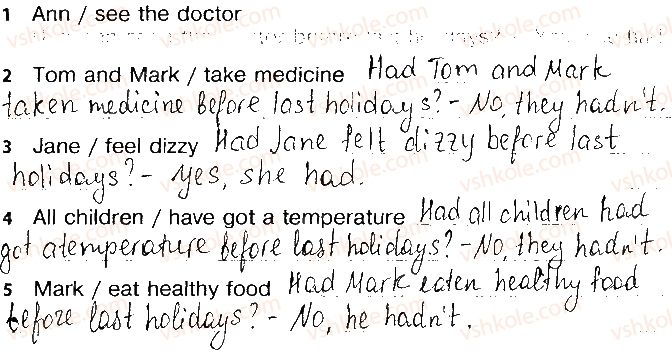 1 Ann / see the doctor
2 Tom and Mark / take medicine Had Tom and Mark
taken medicine before last holidays? - No, they hadn't.
3 Jane / feel dizzy Had Jane felt dizzy before last
holidays? - Yes, she had.
4 All children / have got a temperature Had all children had
got a temperature before last holidays? - No, they hadn't.
5 Mark / eat healthy food Had Mark eaten healthy food
before last holidays? - No, he hadn't.